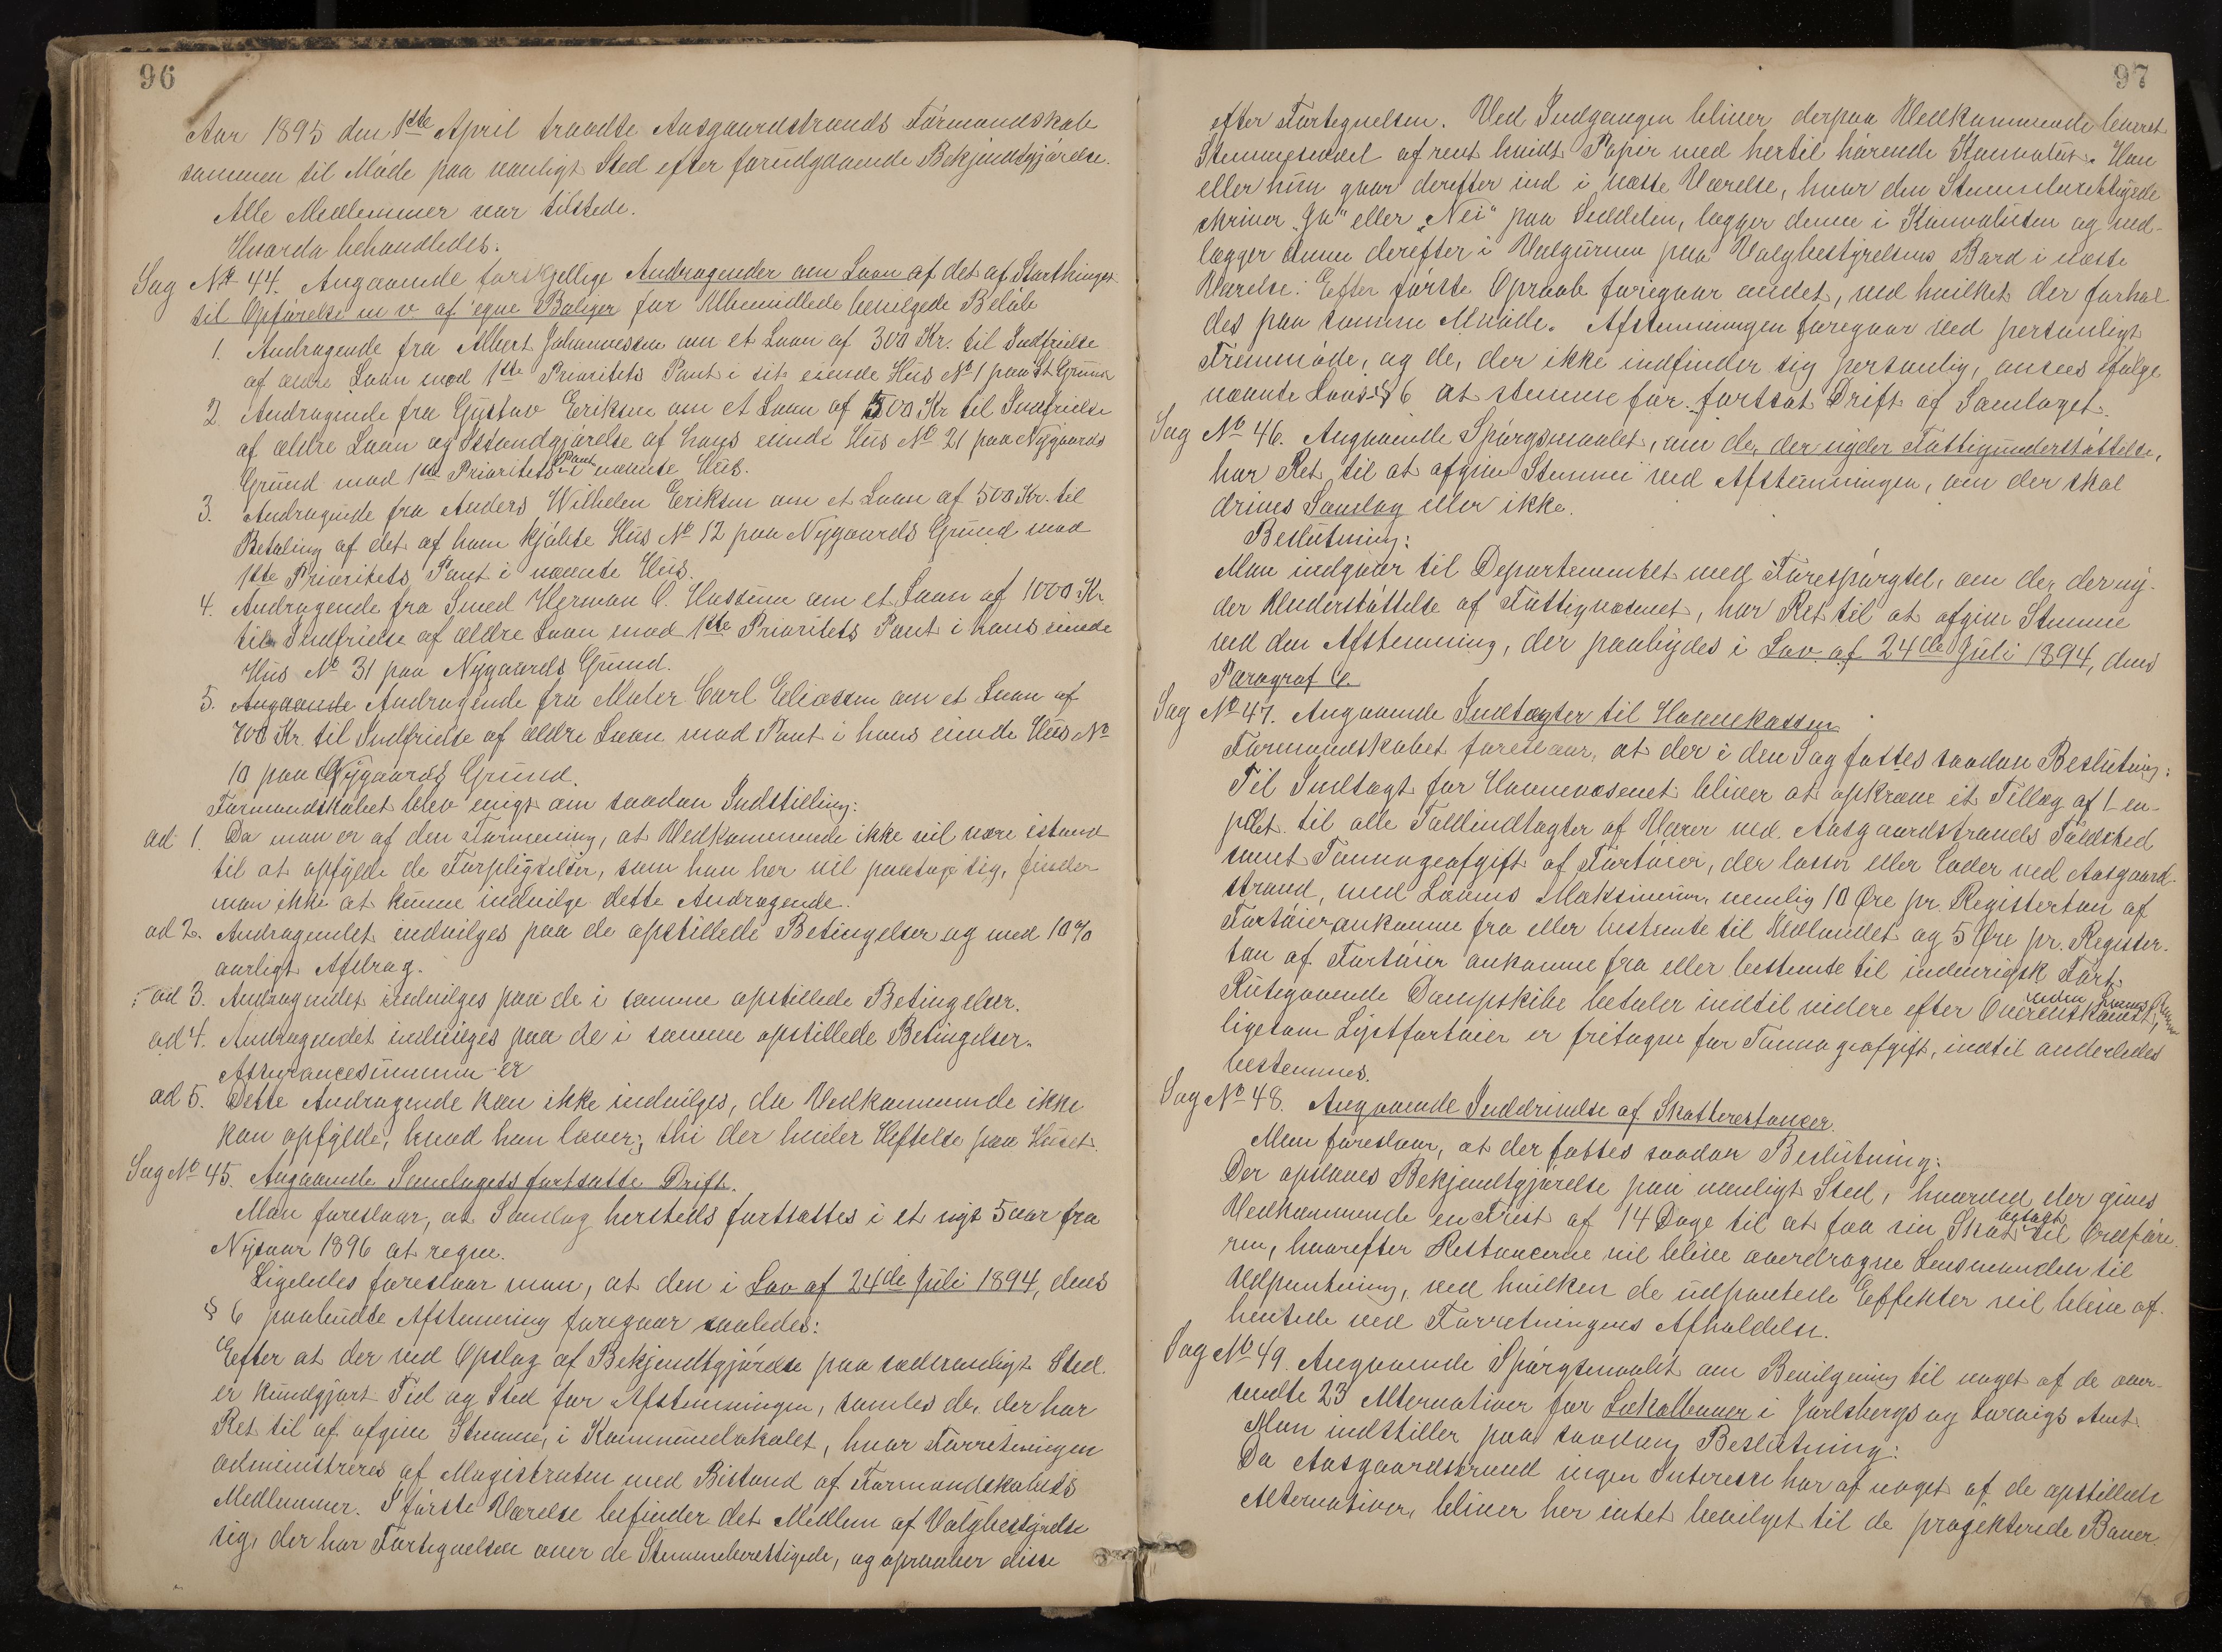 96
Aar 1895 den 1ste April traadte Aasgaardstrands Formandskab
sammen til Møde paa vanligt Sted efter forudgaaende Bekjendtgjørelse.
Alle Medlemmer var tilstede.
Hvorda behandledes:
Sag No 44. Angaaende forskjellige Andragender om Laan af det af Storthinget
til Opførelse m v af egne Boliger for Ubemidlede bevilgede Beløb
1. Andragende fra Albert Johannessen om et Laan af 300 Kr. til Indfrielse
af ældre Laan mod 1ste Prioritets Pant i sit eiende Hus No 1 paa St. Grund
2 Andragende fra Gustav Eriksen om et Laan af 500 Kr til Indfrielse
af ældre Laan og Istandgjørelse af hans eiende Hus No 21 paa Nygaards
Grund mod 1ste Prioritets Pant i nævnte Hus.
3. Andragende fra Anders Wilhelm Eriksen om et Laan af 500 Kr. til
Betaling af det af ham kjøbte Hus No 12 paa Nygaards Grund mod
1ste Prioritets Pant i nævnte Hus.
4. Andragende fra Smed Herman O. Hassum om et Laan af 1000 Kr
til Indfrielse af ældre Laan mod 1ste Prioritets Pant i hans eiende
Hus No 31 paa Nygaards Grund.
5. Angaaende Andragende fra Maler Carl Eliassen om et Laan af
700 Kr. til Indfrielse af ældre Laan mod Pant i hans eiende Hus No
10 paa Nygaards Grund.
Formandskabet blev enigt om saadan Indstilling:
ad 1. Da man er af den Formening, at Vedkommende ikke vil være istand
til at opfylde de Forpligtelser, som han her vil paatage sig, finder
man ikke at kunne indvilge dette Andragende.
ad 2. Andragendet indvilges paa de opstillede Betingelser og med 10%
aarligt Afdrag.
ad 3. Andragendet indvilges paa de i samme opstillede Betingelser.
ad 4. Andragendet indvilges paa de i samme opstillede Betingelser.
Assurancesummen er
ad 5. Dette Andragende kan ikke indvilges, da Vedkommende ikke
kan opfylde, hvad han lover; thi der hviler Heftelse paa Huset.
Sag No 45. Angaaende Samlagets fortsatte Drift.
Man foreslaar, at Samlag hersteds fortsættes i et nyt 5aar fra
Nytaar 1896 at regne.
Ligeledes foreslaar man, at den i Lov af 24de Juli 1894, dens
§ 6 paabudte Afstemning foregaar saaledes:
Efter at der ved Opslag af Bekjendtgjørelse paa sædvanligt Sted
er kundgjort Tid og Sted for Afstemningen, samles de, der har
Ret til af afgive Stemme, i Kommunelokalet, hvor Forretningen
administreres af Magistraten med Bistand af Formandskabets
Medlemmer. I første Værelse befinder det Medlem af Valgbestyrelse
sig, der har Fortegnelsen over de Stemmeberettigede, og opraaber disse
97
efter Fortegnelsen. Ved Indgangen bliver derpaa Vedkommende leveret
Stemmeseddel af rent hvidt Papir med hertil hørende Konvolut. Han
eller hun gaar derefter ind i næste Værelse, hvor den Stemmeberettigede
skriver „Ja“ eller „Nei“ paa Seddelen, lægger denne i Konvoluten og ned-
lægger denne derefter i Valgurnen paa Valgbestyrelsens Bord i næste
Værelse. Efter første Opraab foregaar andet, ved hvilket der forhol
des paa samme Maade. Afstemningen foregaar ved personligt
Fremmøde, og de, der ikke indfinder sig personlig, ansees ifølge
nævnte Lovs § 6 at stemme for fortsat Drift af Samlaget.
Sag No 46. Angaaende Spørgsmaalet, om de, der nyder Fattigunderstøttelse,
har Ret til at afgive Stemme ved Afstemningen, om der skal
drives Samlag eller ikke.
Beslutning:
Man indgaar til Departementet med Forespørgsel, om de, der ny-
der Understøttelse af Fattigvæsenet, har Ret til at afgive Stemme
ved den Afstemning, der paabydes i Lov af 24de Juli 1894, dens
Paragraf 6.
Sag No 47. Angaaende Indtægter til Havnekassen
Formandskabet foreslaar, at der i den Sag fattes saadan Beslutning:
Til Indtægt for Havnevæsenet bliver at opkræve et Tillæg af 1 en-
pdet. til alle Toldindtægter af Varer ved Aasgaardstrands Toldsted
samt Tonnageafgift af Fartøier, der losser eller lader ved Aasgaard-
strand, med Lovens Maksimum, nemlig 10 Øre pr. Registerton af
Fartøier ankomne fra eller bestemte til Udlandet og 5 Øre pr. Register-
ton af Fartøier ankomne fra eller bestemte til indenrigsk Fart.
Rutegaaende Dampskibe betaler indtil videre efter Overenskomst,
ligesom Lystfartøier er fritagne for Tonnageafgift, indtil anderledes
bestemmes.
Sag No 48. Angaaende Inddrivelse af Skatterestancer.
Man foreslaar, at der fattes saadan Beslutning:
Der opslaaes Bekjendtgjørelse paa vanligt Sted, hvorved der gives
Vedkommende en Frist af 14 Dage til at faa sin Skat betalt til Ordføre-
ren, hvorefter Restancerne vil blive overdragne Lensmanden til
Udpantning, ved hvilken de udpantede Effekter vil blive af-
hentede ved Forretningens Afholdelse.
Sag No 49. Angaaende Spørgsmaalet om Bevilgning til noget af de over-
sendte 23 Alternativer for Lokalbaner i Jarlsbergs og Larviks Amt.
Man indstiller paa saadan Beslutning:
Da Aasgaardstrand ingen Interesse har af noget af de opstillede
Alternativer, bliver her intet bevilget til de projekterede Baner.